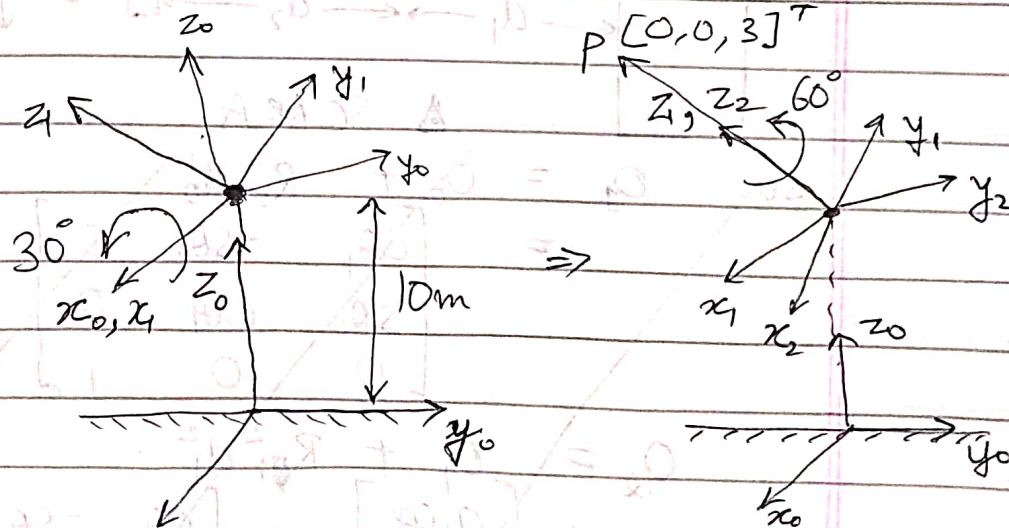 z₀
y₁
z₁
y₀
30°
x₀, x₁
z₀
10m
y₀
⇒
P [0,0,3]ᵀ
z₁, z₂ 60°
y₁
y₂
x₁
x₂
z₀
y₀
x₀